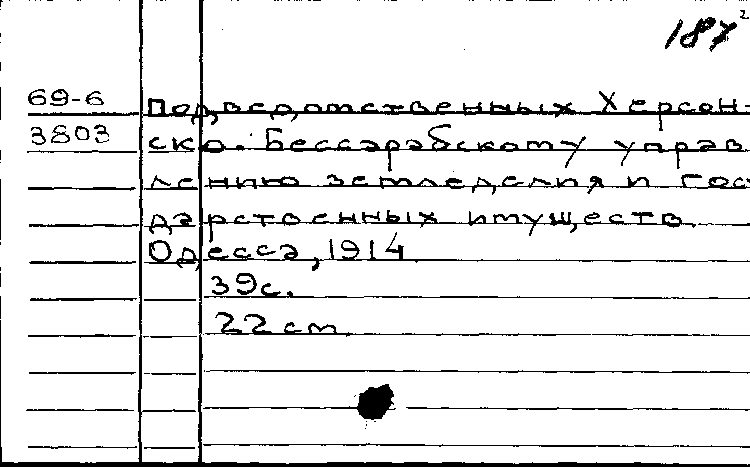 187²
69-6 подведомственных Херсон-
3803 ско. Бессарабскому управ
лению земледелия и гос
дарственных имуществ.
Одесса, 1914
39с.
22 cm